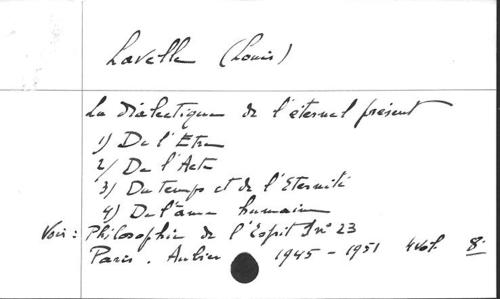 Lavelle (Louis)
La dialectique de l'éternel présent
1) De l'Etre
2) De l'Acte
3) Du temps et de l'Eternité
4) De l'âme humaine
Voir : Philosophie de l'Esprit n° 23
Paris. Aubier 1945 - 1951 4 vol. 8°